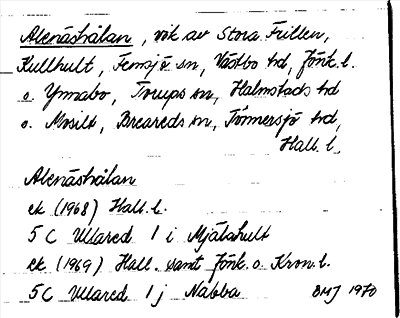 Alenäshålan, vik av Stora Frillen,
Kullhult, Femsjö sn, Västbo hd, Jönk. l.
o. Ymabo, Torups sn, Halmstads hd
o. Mosilt, Breareds sn, Tönnersjö hd,
Hall. l.
Alenäshålan
ek (1968) Hall. l.
5 C Ullared 1 i Mjälahult
ek. (1969) Hall. samt Jönk. o. Kron. l.
5C Ullared 1 j Nabba BMJ 1970